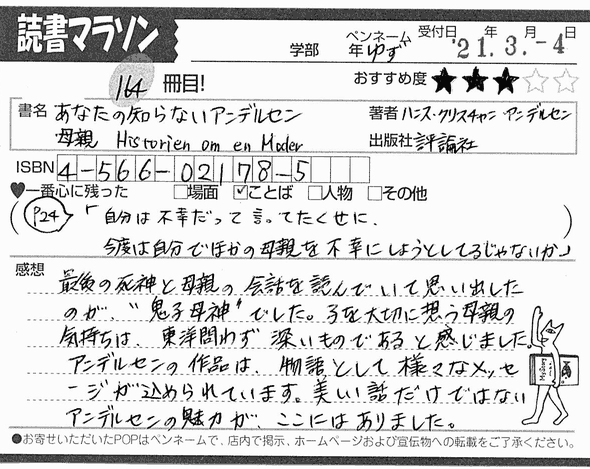 読書マラソン
学部 年 ペンネーム ゆず 受付日 年 月 日
'21.3.-4
164 冊目! おすすめ度 ★★★☆☆
書名 あなたの知らないアンデルセン 著者 ハンス・クリスチャン アンデルセン
母親 Historien om en Moder 出版社 評論社
ISBN 4-566-02178-5
♥一番心に残った □場面 ☑ことば □人物 □その他
(P24 「自分は不幸だって言ってたくせに、
今度は自分でほかの母親を不幸にしようとしてるじゃないか」)
感想 最後の死神と母親の会話を読んでいて思い出した
のが、"鬼子母神"でした。子を大切に想う母親の
気持ちは、東洋問わず深いものであると感じました
アンデルセンの作品は、物語として様々なメッセ
ージが込められています。美しい話だけではない
アンデルセンの魅力が、ここにはありました。
●お寄せいただいたPOPはペンネームで、店内で掲示、ホームページおよび宣伝物への転載をご了承ください。